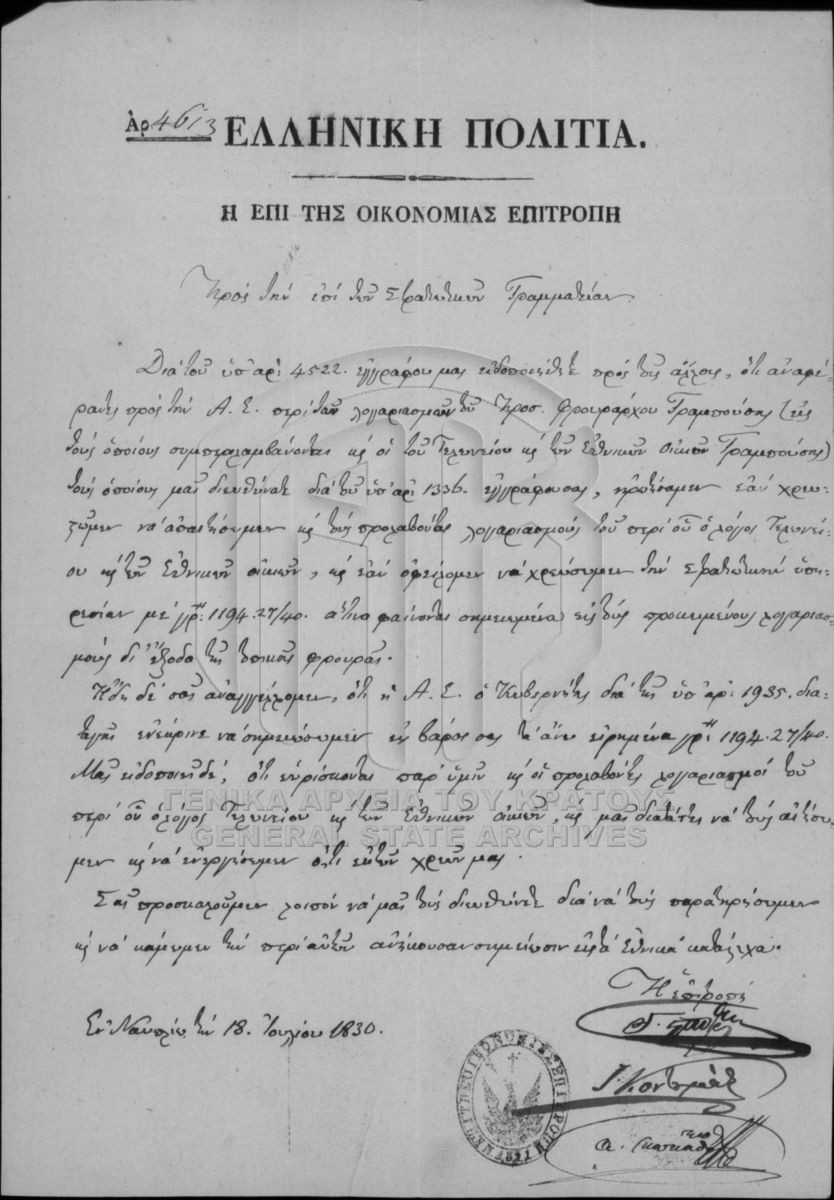 Ἀρ 4613
ΕΛΛΗΝΙΚΗ ΠΟΛΙΤΙΑ.
Η ΕΠΙ ΤΗΣ ΟΙΚΟΝΟΜΙΑΣ ΕΠΙΤΡΟΠΗ
Πρὸς τὴν ἐπὶ τῶν Στρατιωτικῶν Γραμματείαν.
Διὰ τοῦ ὑπ' ἀρ: 4522. ἐγγράφου μας εἰδοποιήθητε πρὸς τοῖς ἄλλοις, ὅτι ἀναφέ-
ραντες πρὸς τὴν Α. Ε. περὶ τῶν λογαριασμῶν τοῦ Προσ. Φρουράρχου Γραμπούσης (εἰς
τοὺς ὁποίους συμπεριλαμβάνονται κ οἱ τοῦ Τελωνείου κ τῶν Ἐθνικῶν οἰκιῶν Γραμπούσης)
τοὺς ὁποίους μᾶς διευθύνατε διὰ τοῦ ὑπ' ἀρ: 1336. ἐγγράφου σας, ἠρωτήσαμεν ἐὰν χρεω-
στῶμεν νὰ ἀπαιτήσωμεν κ τοὺς προλαβόντας λογαριασμοὺς τοῦ περὶ οὗ ὁ λόγος Τελωνεί-
ου κ τῶν Ἐθνικῶν οἰκιῶν, κ ἐὰν ὀφείλωμεν νὰ χρεώσωμεν τὴν Στρατιωτικὴν ὑπη-
ρεσίαν μὲ γρ: 1194.27/40. ἅτινα φαίνονται σημειωμένα εἰς τοὺς προκειμένους λογαριασ-
μοὺς δι' ἔξοδα τῆς τοπικῆς φρουρᾶς.
Ἤδη δὲ σᾶς ἀναγγέλλομεν, ὅτι ἡ Α. Ε. ὁ Κυβερνήτης διὰ τῆς ὑπ' ἀρ: 1935. δια-
ταγῆς ἐνέκρινε νὰ σημειώσωμεν εἰς βάρος σας τὰ ἄνω εἰρημένα γρ: 1194.27/40.
Μᾶς εἰδοποιεῖ δὲ, ὅτι εὑρίσκονται παρ' ὑμῖν κ οἱ προλαβόντες λογαριασμοὶ τοῦ
περὶ οὗ ὁ λόγος Τελωνείου κ τῶν Ἐθνικῶν οἰκιῶν, κ μᾶς διατάττει νὰ τοὺς αἰτήσω-
μεν κ νὰ ἐνεργήσωμεν ὅ,τι ἐκ τῶν χρεῶν μας.
Σᾶς προσκαλοῦμεν λοιπὸν νὰ μᾶς τοὺς διευθύνετε διὰ νὰ τοὺς παρατηρήσωμεν
κ νὰ κάμωμεν τὴν περὶ αὐτῶν ἀνήκουσαν σημείωσιν εἰς τὰ Ἐθνικὰ κατάστιχα.
Ἡ ἐπιτροπὴ
Ἐν Ναυπλίῳ τὴν 18. Ἰουλίου 1830.
ΓΕΝΙΚΑ ΑΡΧΕΙΑ ΤΟΥ ΚΡΑΤΟΥΣ
GENERAL STATE ARCHIVES